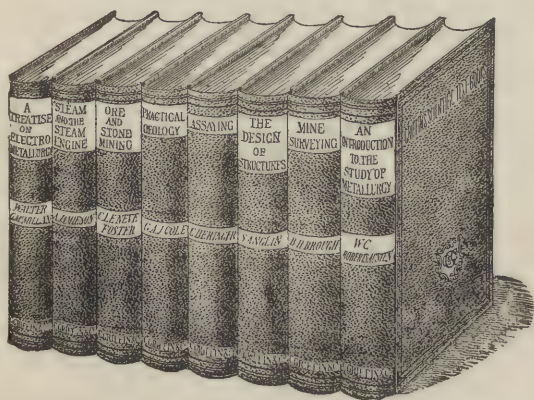 A
TREATISE
ON
ELECTRO
METALLURGY
WALTER
STEAM
AND THE
STEAM
ENGINE
A.JAMIESON
ORE
AND
STONE
MINING
C.LE NEVE
FOSTER
PRACTICAL
GEOLOGY
G.A.J COLE
ASSAYING
C.BERINGER
THE
DESIGN
OF
STRUCTURES
S.ANGLIN
MINE
SURVEYING
B.H.BROUGH
AN
INTRODUCTION
TO THE
STUDY OF
METALLURGY
W.C
ROBERTS AUSTEN